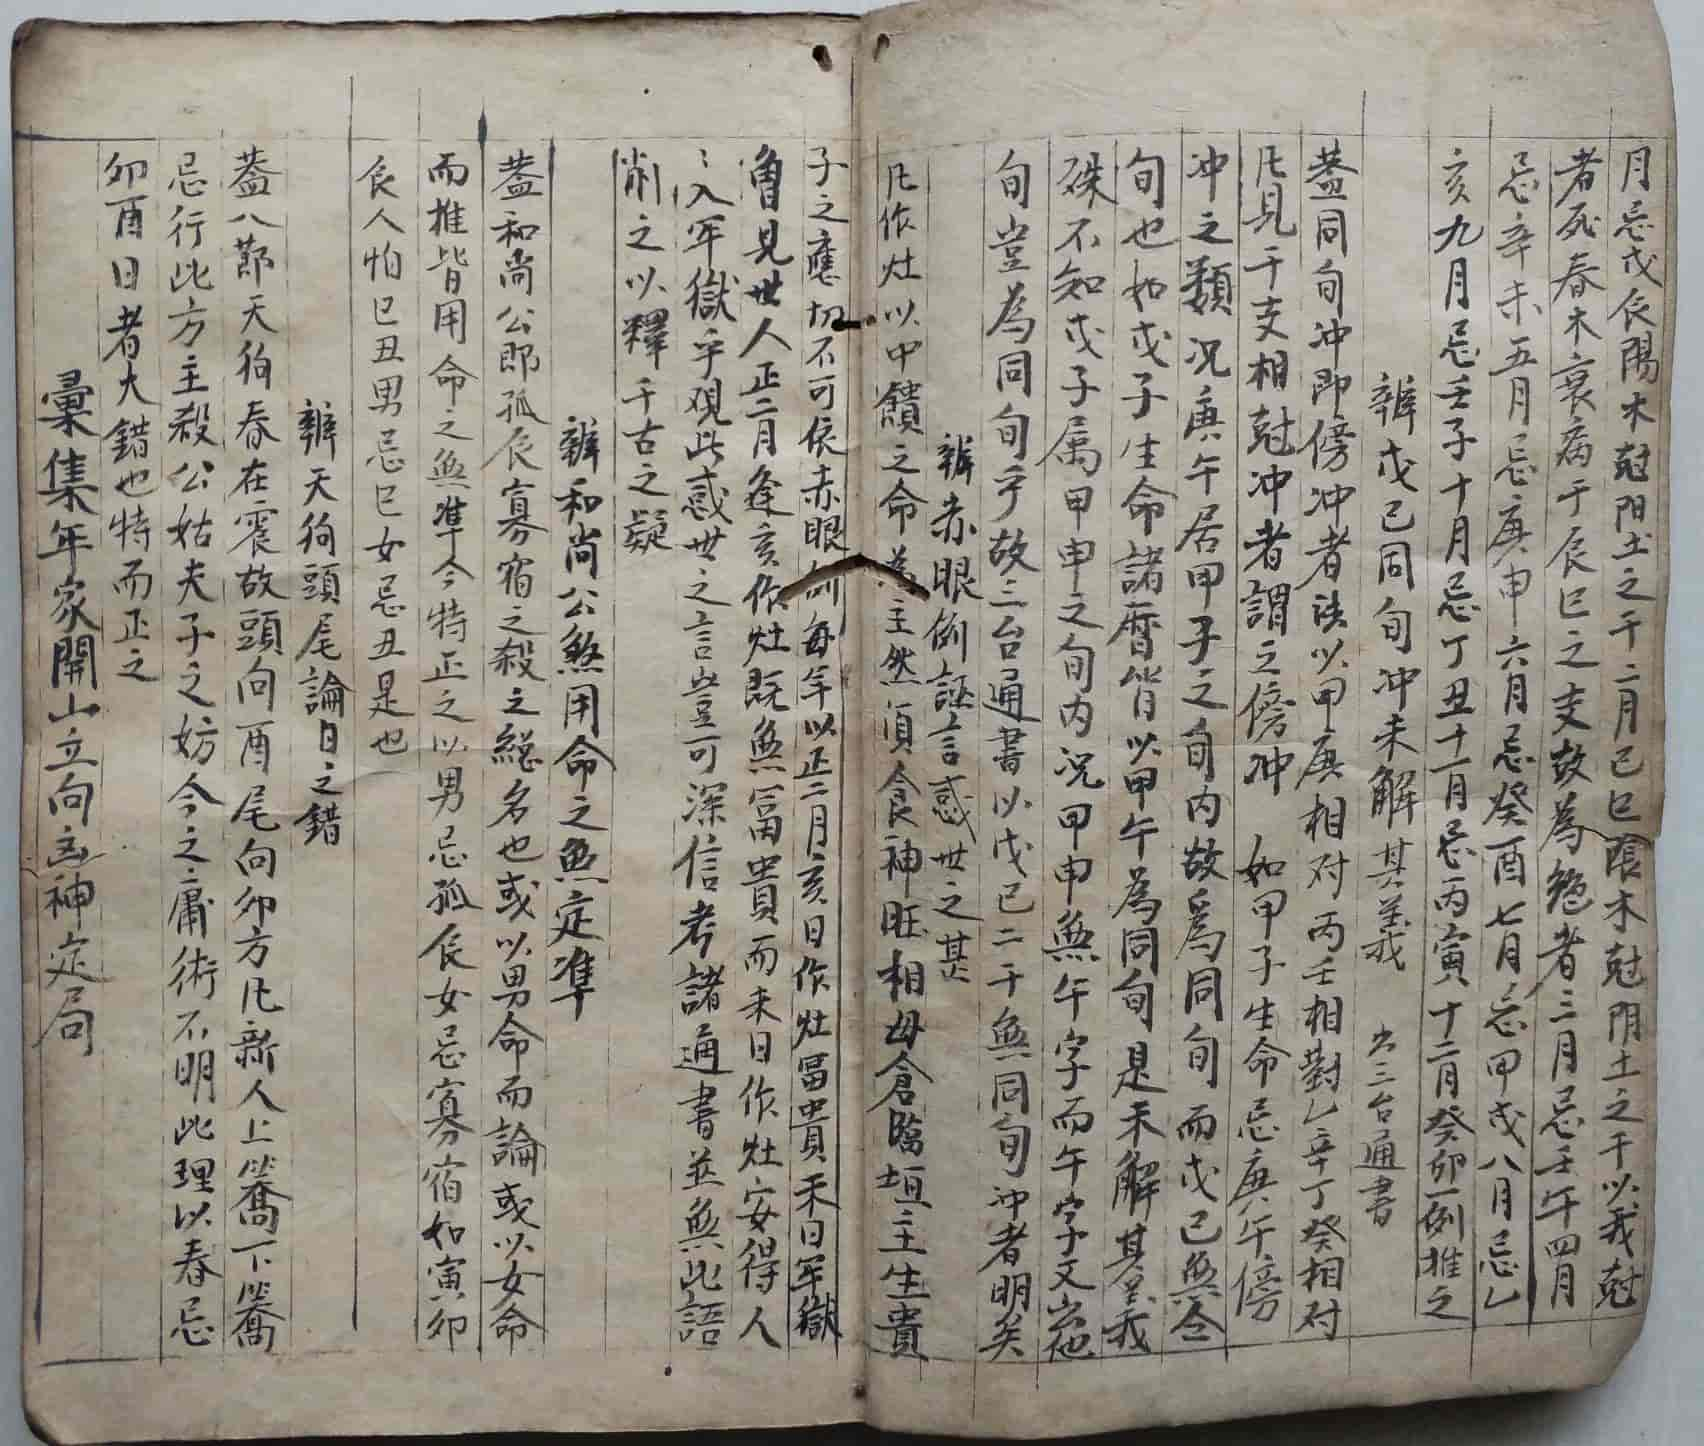 月忌戊辰陽木尅阳土之干二月己巳陰木尅阴土之干以我尅
者死春木衰病于辰巳之支故為絶者三月忌壬午四月
忌辛未五月忌庚申六月忌癸酉七月忌甲戌八月忌乙
亥九月忌壬子十月忌丁丑十一月忌丙寅十二月癸卯一例推之
辨戊己同旬冲未解其義 出三台通書
蓋同旬冲即傍冲者误以甲庚相对丙壬相對乙辛丁癸相对
凡見干支相尅冲者謂之傍冲 如甲子生命忌庚午傍
冲之類况庚午居甲子之旬内故為同旬而戊己無合
旬也如戊子生命諸曆皆以甲午為同旬是未解其義
殊不知戊子属甲申之旬内况甲申無午字而午字又出他
旬豈為同旬乎故三台通書以戊己二干無同旬冲者明矣
辨赤眼例誣言惑世之甚
凡作灶以中饋之命為主然須食神旺相母倉臨垣主生貴
子之應切不可依赤眼例每年以正二月亥日作灶冨貴未日牢獄
曾見世人正二月逢亥作灶既無冨貴而未日作灶安得人
〻入牢獄乎观此惑世之言豈可深信考諸通書並無此語
削之以釋千古之疑
辨和尚公煞用命之無定凖
蓋和尚公即孤辰寡宿之殺之総名也或以男命而論或以女命
而推皆用命之無凖今特正之以男忌孤辰女忌寡宿如寅卯
辰人怕巳丑男忌巳女忌丑是也
辨天狗頭尾論日之錯
蓋八節天狗春在震故頭向酉尾向卯方凡新人上轎下轎
忌行此方主殺公姑夫子之妨今之庸術不明此理以春忌
卯酉日者大錯也特而正之
彙集年家開山立向凶神定局